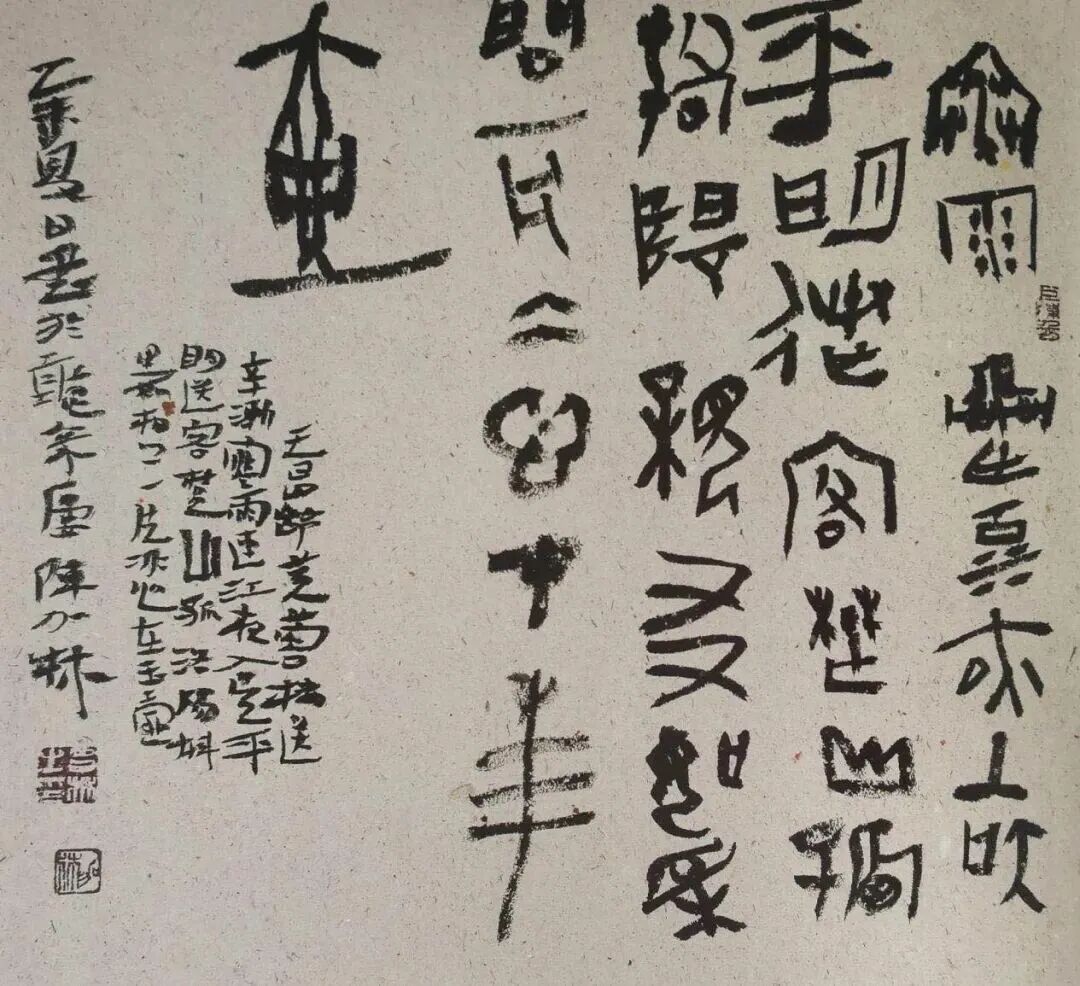 寒雨連江夜入吳
平明送客楚山孤
洛陽親友如相
問一片冰心在玉
壺
王昌齡芙蓉樓送
辛漸寒雨連江夜入吳平
明送客楚山孤洛陽親
友如相問一片冰心在玉壺
乙未夏日書於 陳加林